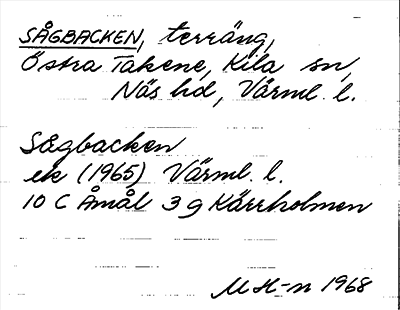 SÅGBACKEN, terräng,
Östra Takene, Kila sn,
Näs hd, Värml. l.
Sågbacken
ek (1965) Värml. l.
10 C Åmål 3 g Kärrholmen
M H-n 1968